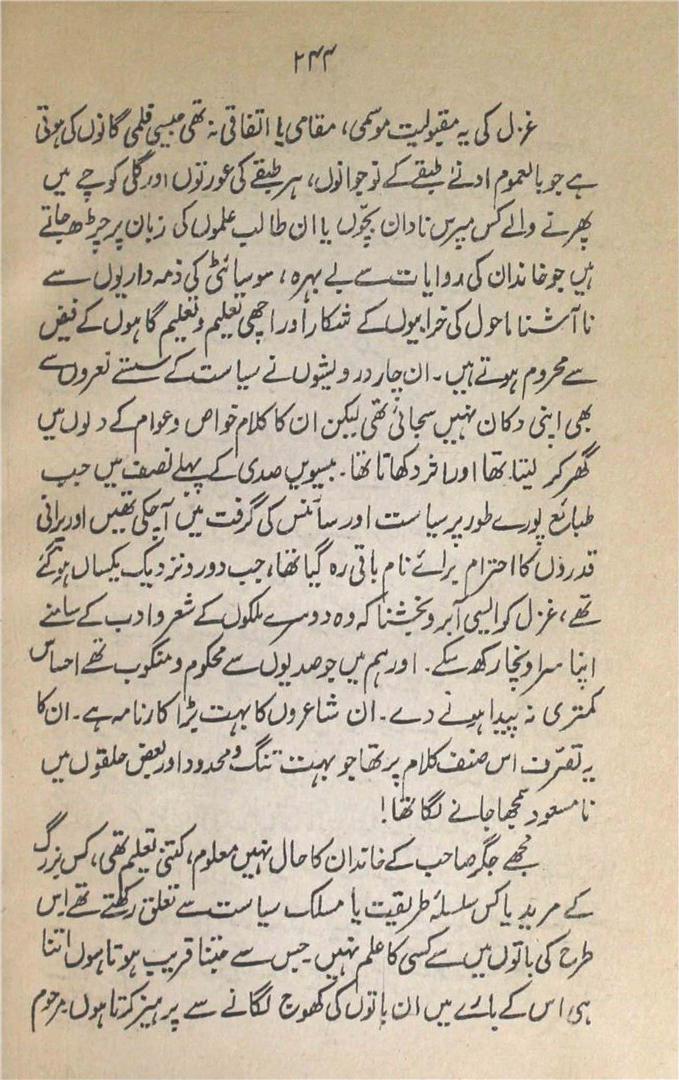 ۲۴۴
غزل کی یہ مقبولیت موسمی، مقامی یا اتفاقی نہ تھی جیسی فلمی گانوں کی ہوتی
ہے جو بالعموم ادنےٰ طبقے کے نوجوانوں، ہر طبقے کی عورتوں اور گلی کوچے میں
پھرنے والے کس مپرس نادان بچّوں یا ان طالب علموں کی زبان پر چڑھ جاتے
ہیں جو خاندان کی روایات سے بے بہرہ، سوسائٹی کی ذمہ داریوں سے
ناآشنا ماحول کی خرابیوں کے شکار اور اچھی تعلیم و تعلیم گاہوں کے فیض
سے محروم ہوتے ہیں۔ ان چار درویشوں نے سیاست کے سستے نعروں سے
بھی اپنی دکان نہیں سجائی تھی لیکن ان کا کلام خواص و عوام کے دلوں میں
گھر کر لیتا تھا اور اثر دکھاتا تھا۔ بیسویں صدی کے پہلے نصف میں جب
طبائع پورے طور پر سیاست اور سائنس کی گرفت میں آچکی تھیں اور پرانی
قدروں کا احترام برائے نام باقی رہ گیا تھا، جب دور و نزدیک یکساں ہوگئے
تھے، غزل کو ایسی آبرو بخشنا کہ وہ دوسرے ملکوں کے شعر و ادب کے سامنے
اپنا سر اونچا رکھ سکے۔ اور ہم میں جو صدیوں سے محکوم و منکوب تھے احساس
کمتری نہ پیدا ہونے دے۔ ان شاعروں کا بہت بڑا کارنامہ ہے۔ ان کا
یہ تصرّف اس صنف کلام پر تھا جو بہت تنگ و محدود اور بعض حلقوں میں
نامسعود سمجھا جانے لگا تھا!
مجھے جگر صاحب کے خاندان کا حال نہیں معلوم، کتنی تعلیم تھی، کس بزرگ
کے مرید یا کس سلسلۂ طریقیت یا مسلک سیاست سے تعلق رکھتے تھے اس
طرح کی باتوں میں سے کسی کا علم نہیں جس سے جتنا قریب ہوتا ہوں اتنا
ہی اس کے بارے میں ان باتوں کی کھوج لگانے سے پرہیز کرتا ہوں مرحوم